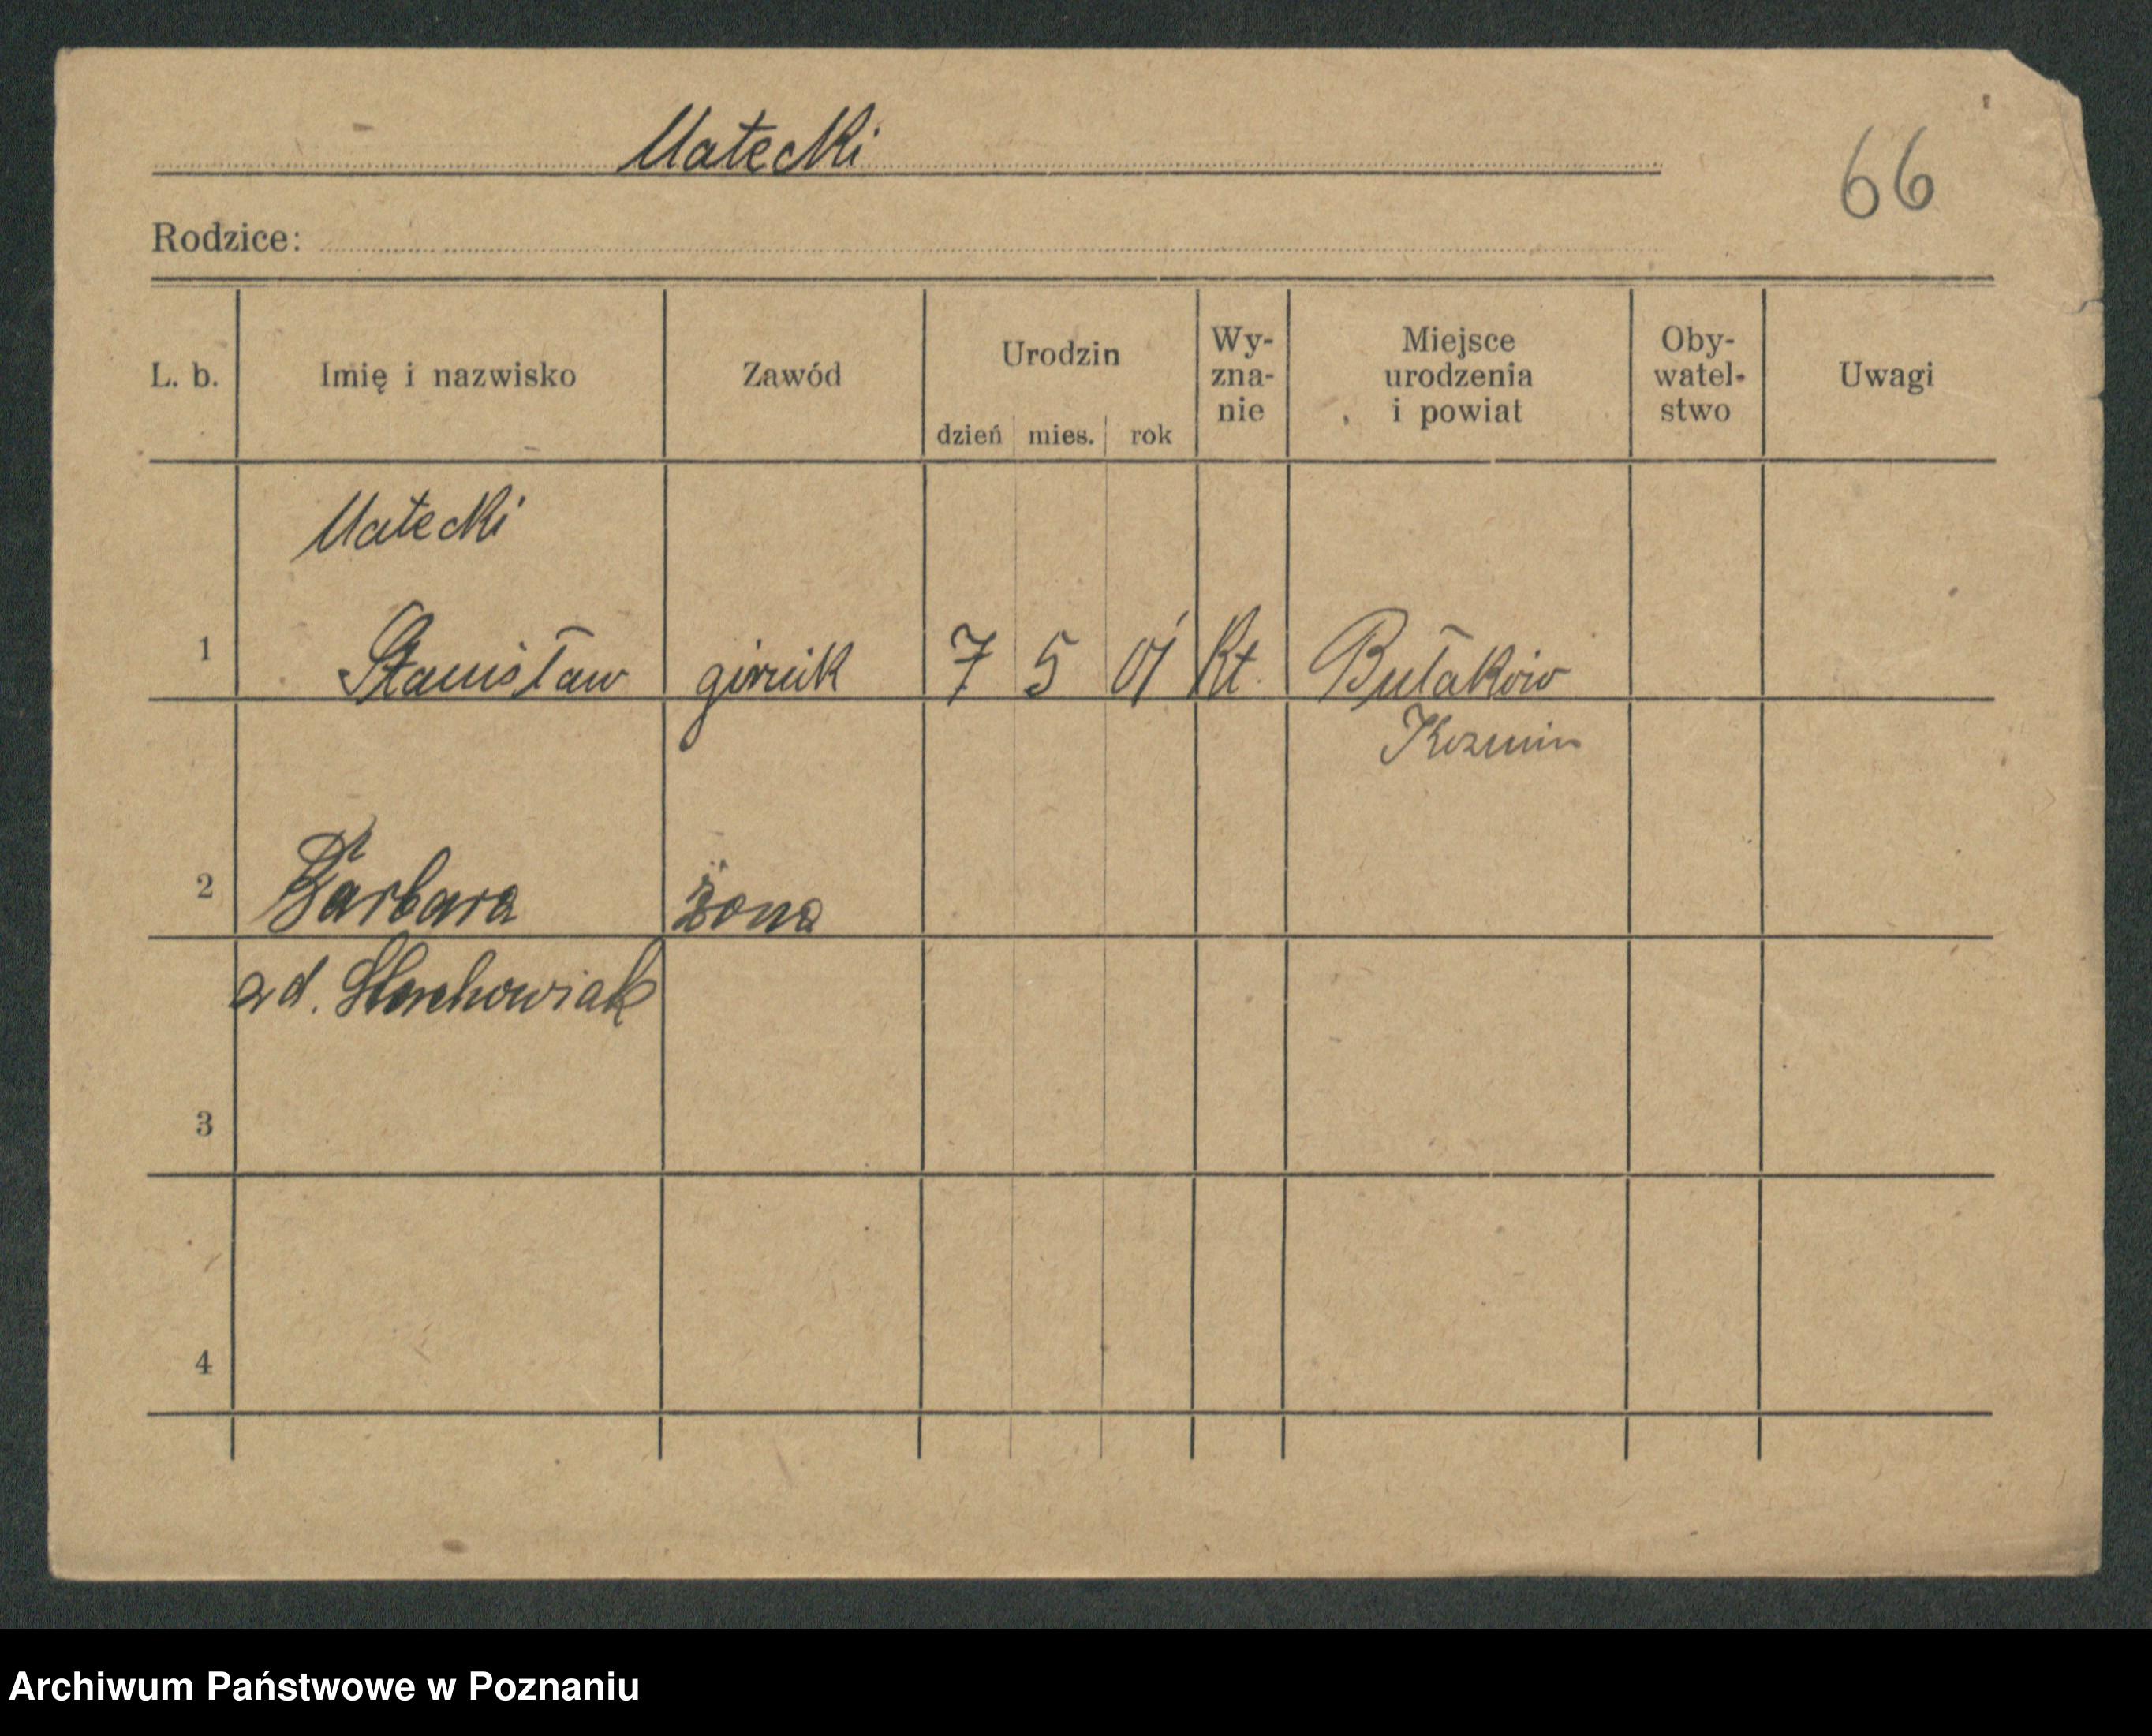 Matecki
66
Rodzice:
L. b. Imię i nazwisko Zawód Urodzin dzień mies. rok Wy-zna-nie Miejsce urodzenia i powiat Oby-watel-stwo Uwagi
Matecki
1 Stanisław górnik 7 5 01 Rt. Bułaków
Kozmin
2 Barbara żona
3
4
Archiwum Państwowe w Poznaniu